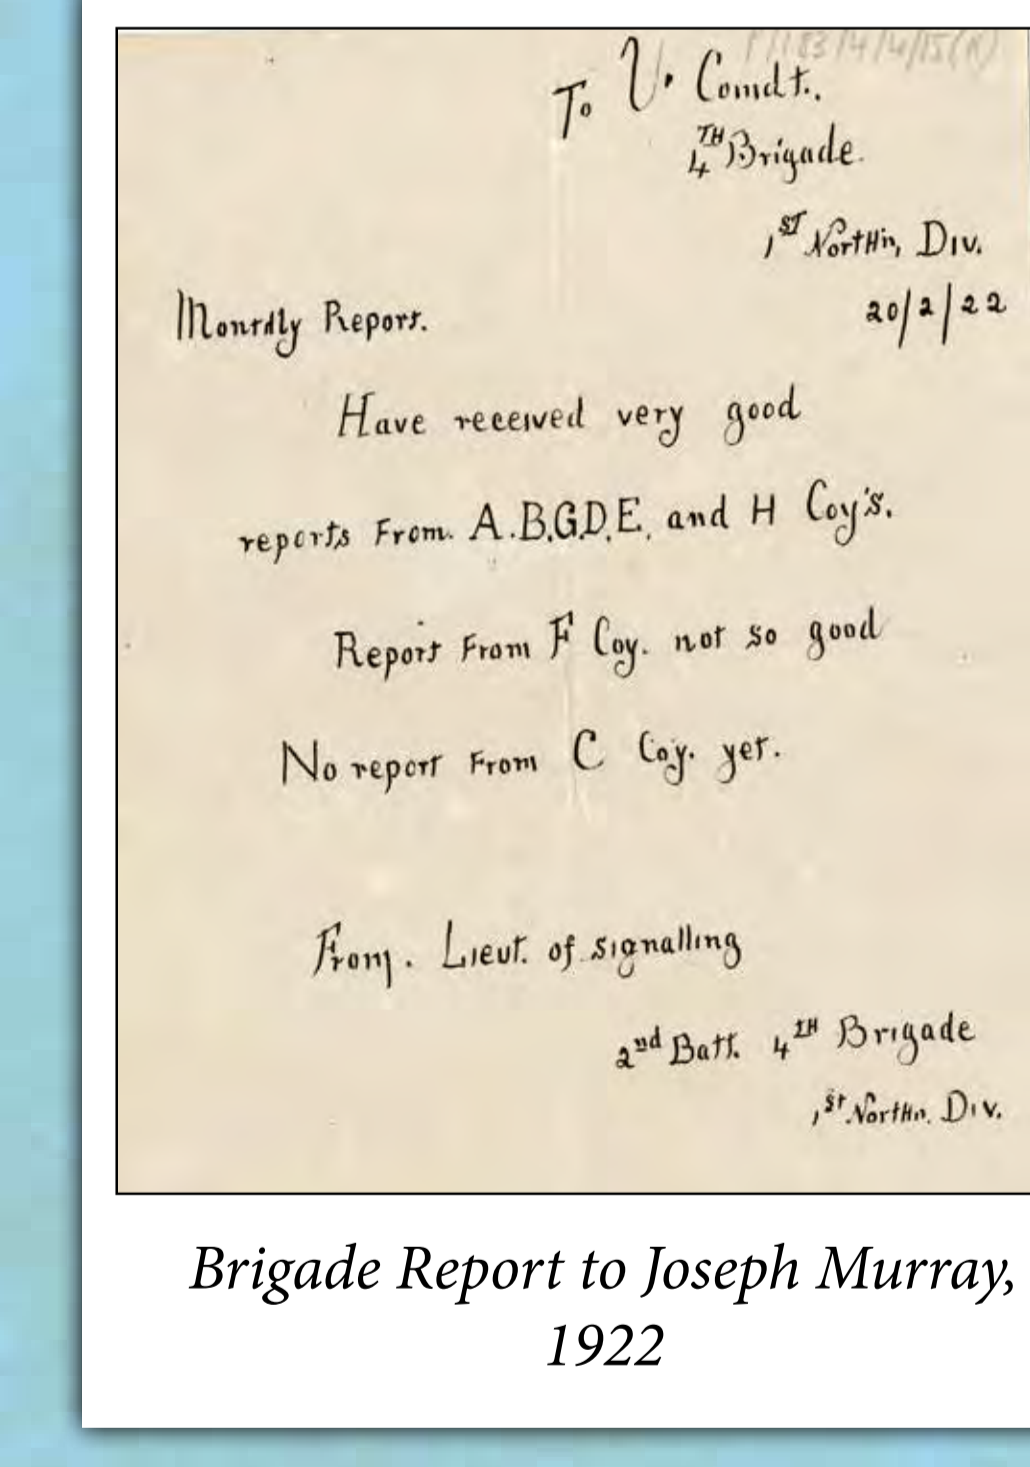 P/183/4/4/15(K)
To V. Comdt.,
4TH Brigade.
1ST Northn, Div.
20/2/22
Montlly Report.
Have received very good
reports From. A.B.G.D.E. and H Coy's.
Report From F Coy. not so good
No report From C Coy. yet.
From. Lieut. of signalling
2nd Batt. 4TH Brigade
1st Northn. Div.
Brigade Report to Joseph Murray,
1922